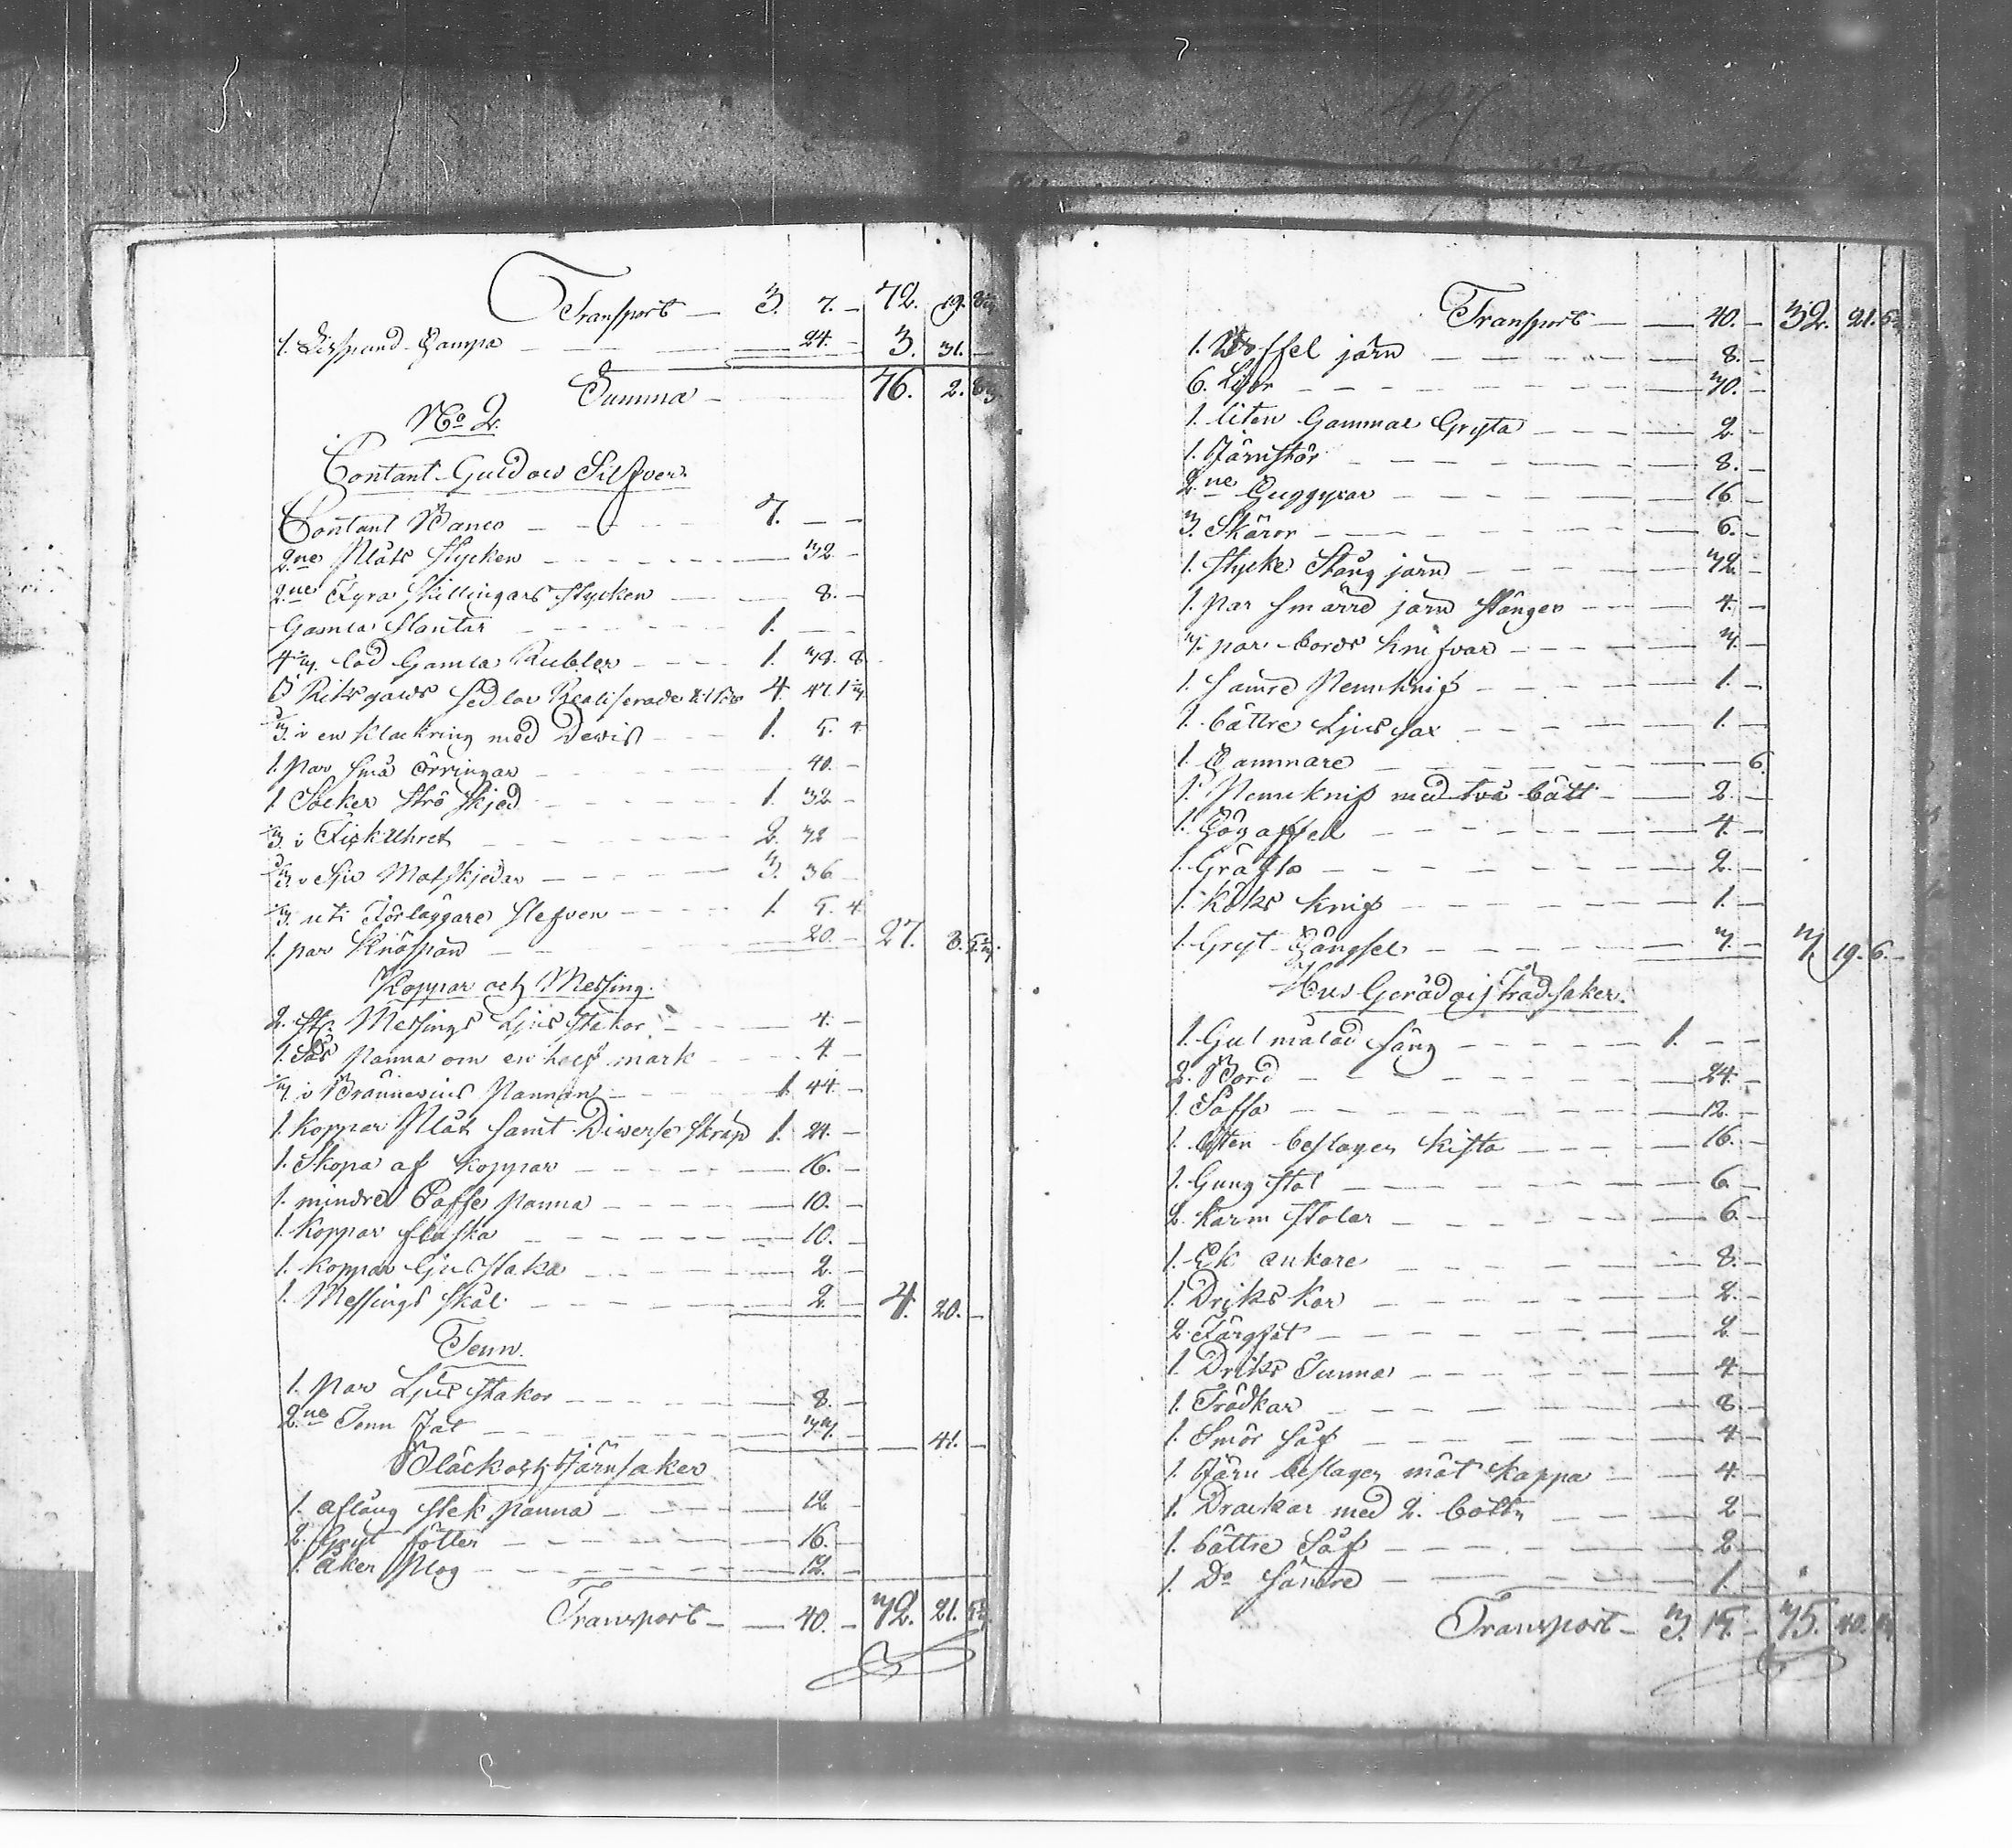 427
Transport — 3. 7. — 72. 19. 8
1. Lispund Hampa — 24. — 3. 31. —
Summa — 76. 2. 8
No 2.
Contant Guld och Silfver
Contant Banco — 7. — —
2ne Plåts stycken — 32 —
2ne Fyra skillingars stycken — 8. —
Gamla slantar 1. — —
lod Gamla Rubler — 1. 38. 8
Riksgäl​ds sedlar Realiserade till Bo 4. 47. 1
i en klackring med Dewis 1. 5. 4
1. par små örringar 40. —
1 Såcker strö skjed 1. 32 —
i Fickuhret 2. 32 —
Matskjedar — 3. 36 —
uti Förläggare slefven 1. 5. 4
1. par knäspän 20. — 27. 3. 5
Koppar och Messing.
2. st. Messings Ljus stakor — 4. —
1. panna om en half mark 4. —
i Brännvins pannan — 1. 44. —
1. Koppar Plåt samt Diverse skräp 1. 24. —
1. Skopa af koppar — 16. —
1. mindre Caffe panna — 10. —
1. Koppar flaska — 10. —
1. Koppar Ljusstaka — 2. —
1. Messings skål — 2. — 4. 20. —
Tenn.
1. par Ljus stakor — 8. —
2ne Tenn Fat — 33. — 41. —
Bläck och Järnsaker
1. aflång stek panna — 12 —
2. Gryt fötter — 16. —
1. åker Plog — 12. —
Transport — 40. — 32. 21. 5
Transport — 40. — 32. 21. 5
1. Woffel järn — 8. —
6. Lijor — 30. —
1. liten Gammal Gryta — 2 —
1. Järnstör — 8. —
2ne Huggyxor — 16 —
3. Skäror — 6. —
1. stycke Stång järn — 32. —
1. par smärre järn stänger — 4. —
3. par bords knifvar — 3. —
1. sämre Pennknif — 1. —
1. bättre Ljus sax — 1. —
1. Hammare — 6.
1. Penneknif med två bätt — 2. —
1. Högaffel — 4. —
1. Gräfta — 2. —
1. Köks knif — 1. —
1. Gryt Hängsel — 3. — 3. 19. 6
Hus Geråd och Trädsaker.
1. Gul målad säng — 1. — —
2. Bord — 24. —
1. Soffa — 12. —
1. liten beslagen kista — 16. —
1. Gung stol — 6 —
2. karm stolar — 6. —
1. Ek ankare — 8. —
1. Dricks Kar — 2. —
2. Färgfat — 2 —
1. Dricks Tunna — 4 —
1. Trödkar — 8. —
1. Smör såf — 4 —
1. Järn beslagen måt kappa — 4. —
1. med 2. bottn — 2 —
1. bättre Såf — 2 —
1. Do sämre — 1. —
Transport — 3. 15. — 35. 40.